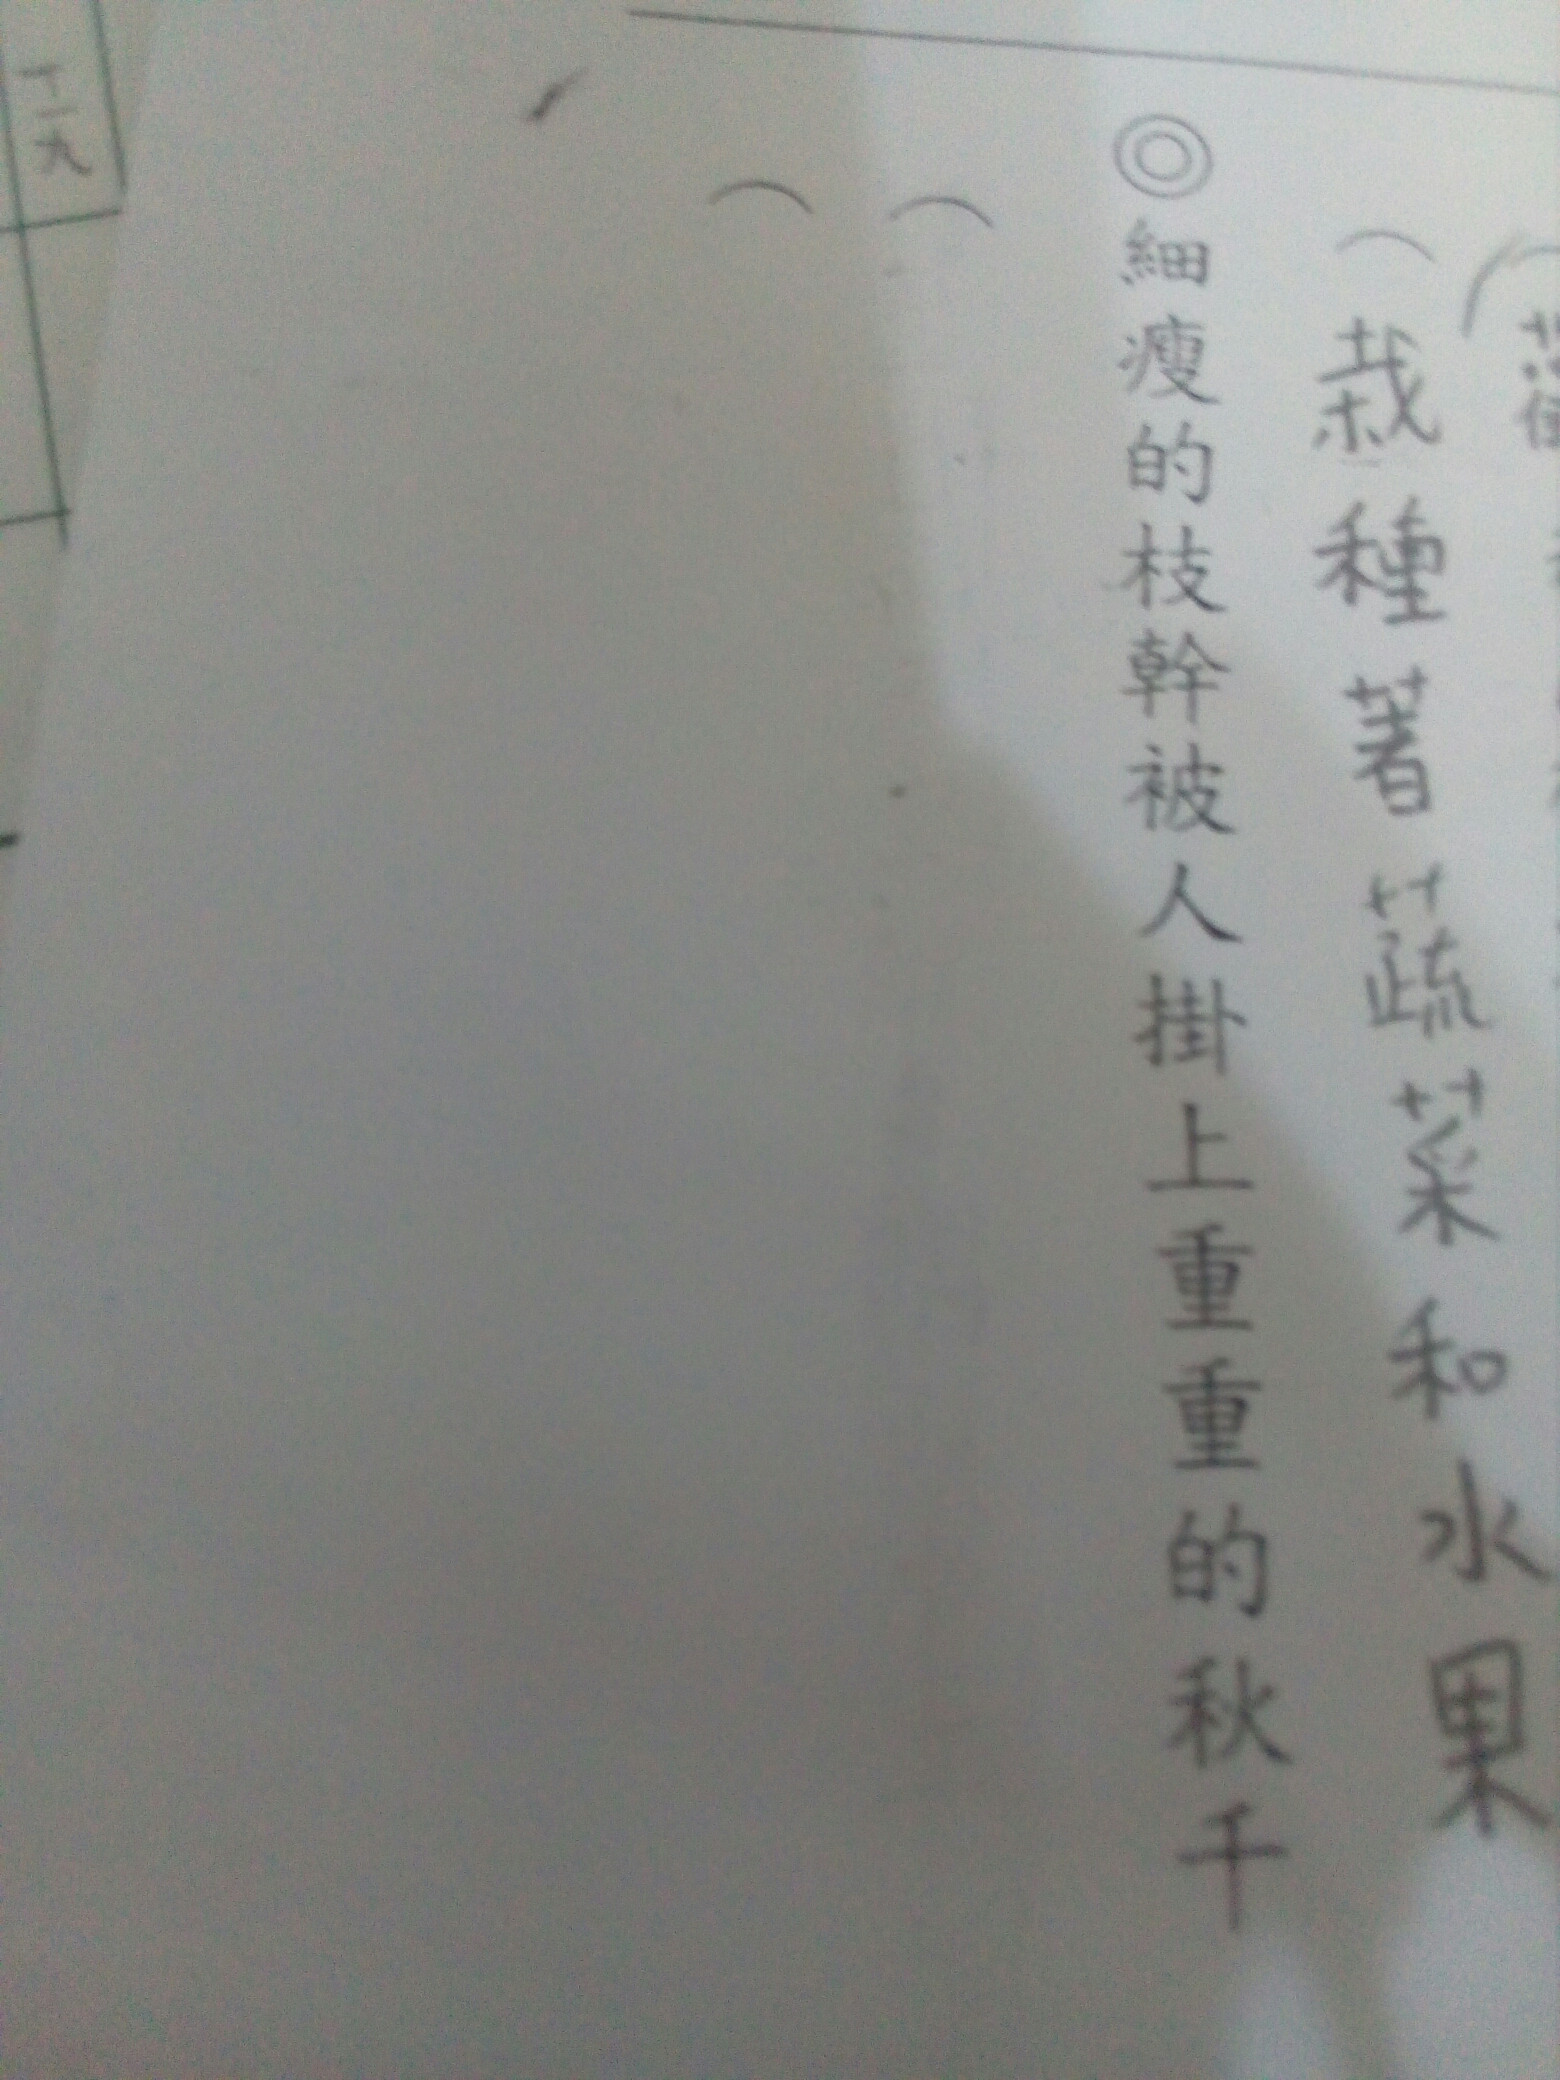 （栽種著蔬菜和水果
◎細瘦的枝幹被人掛上重重的秋千
（
（